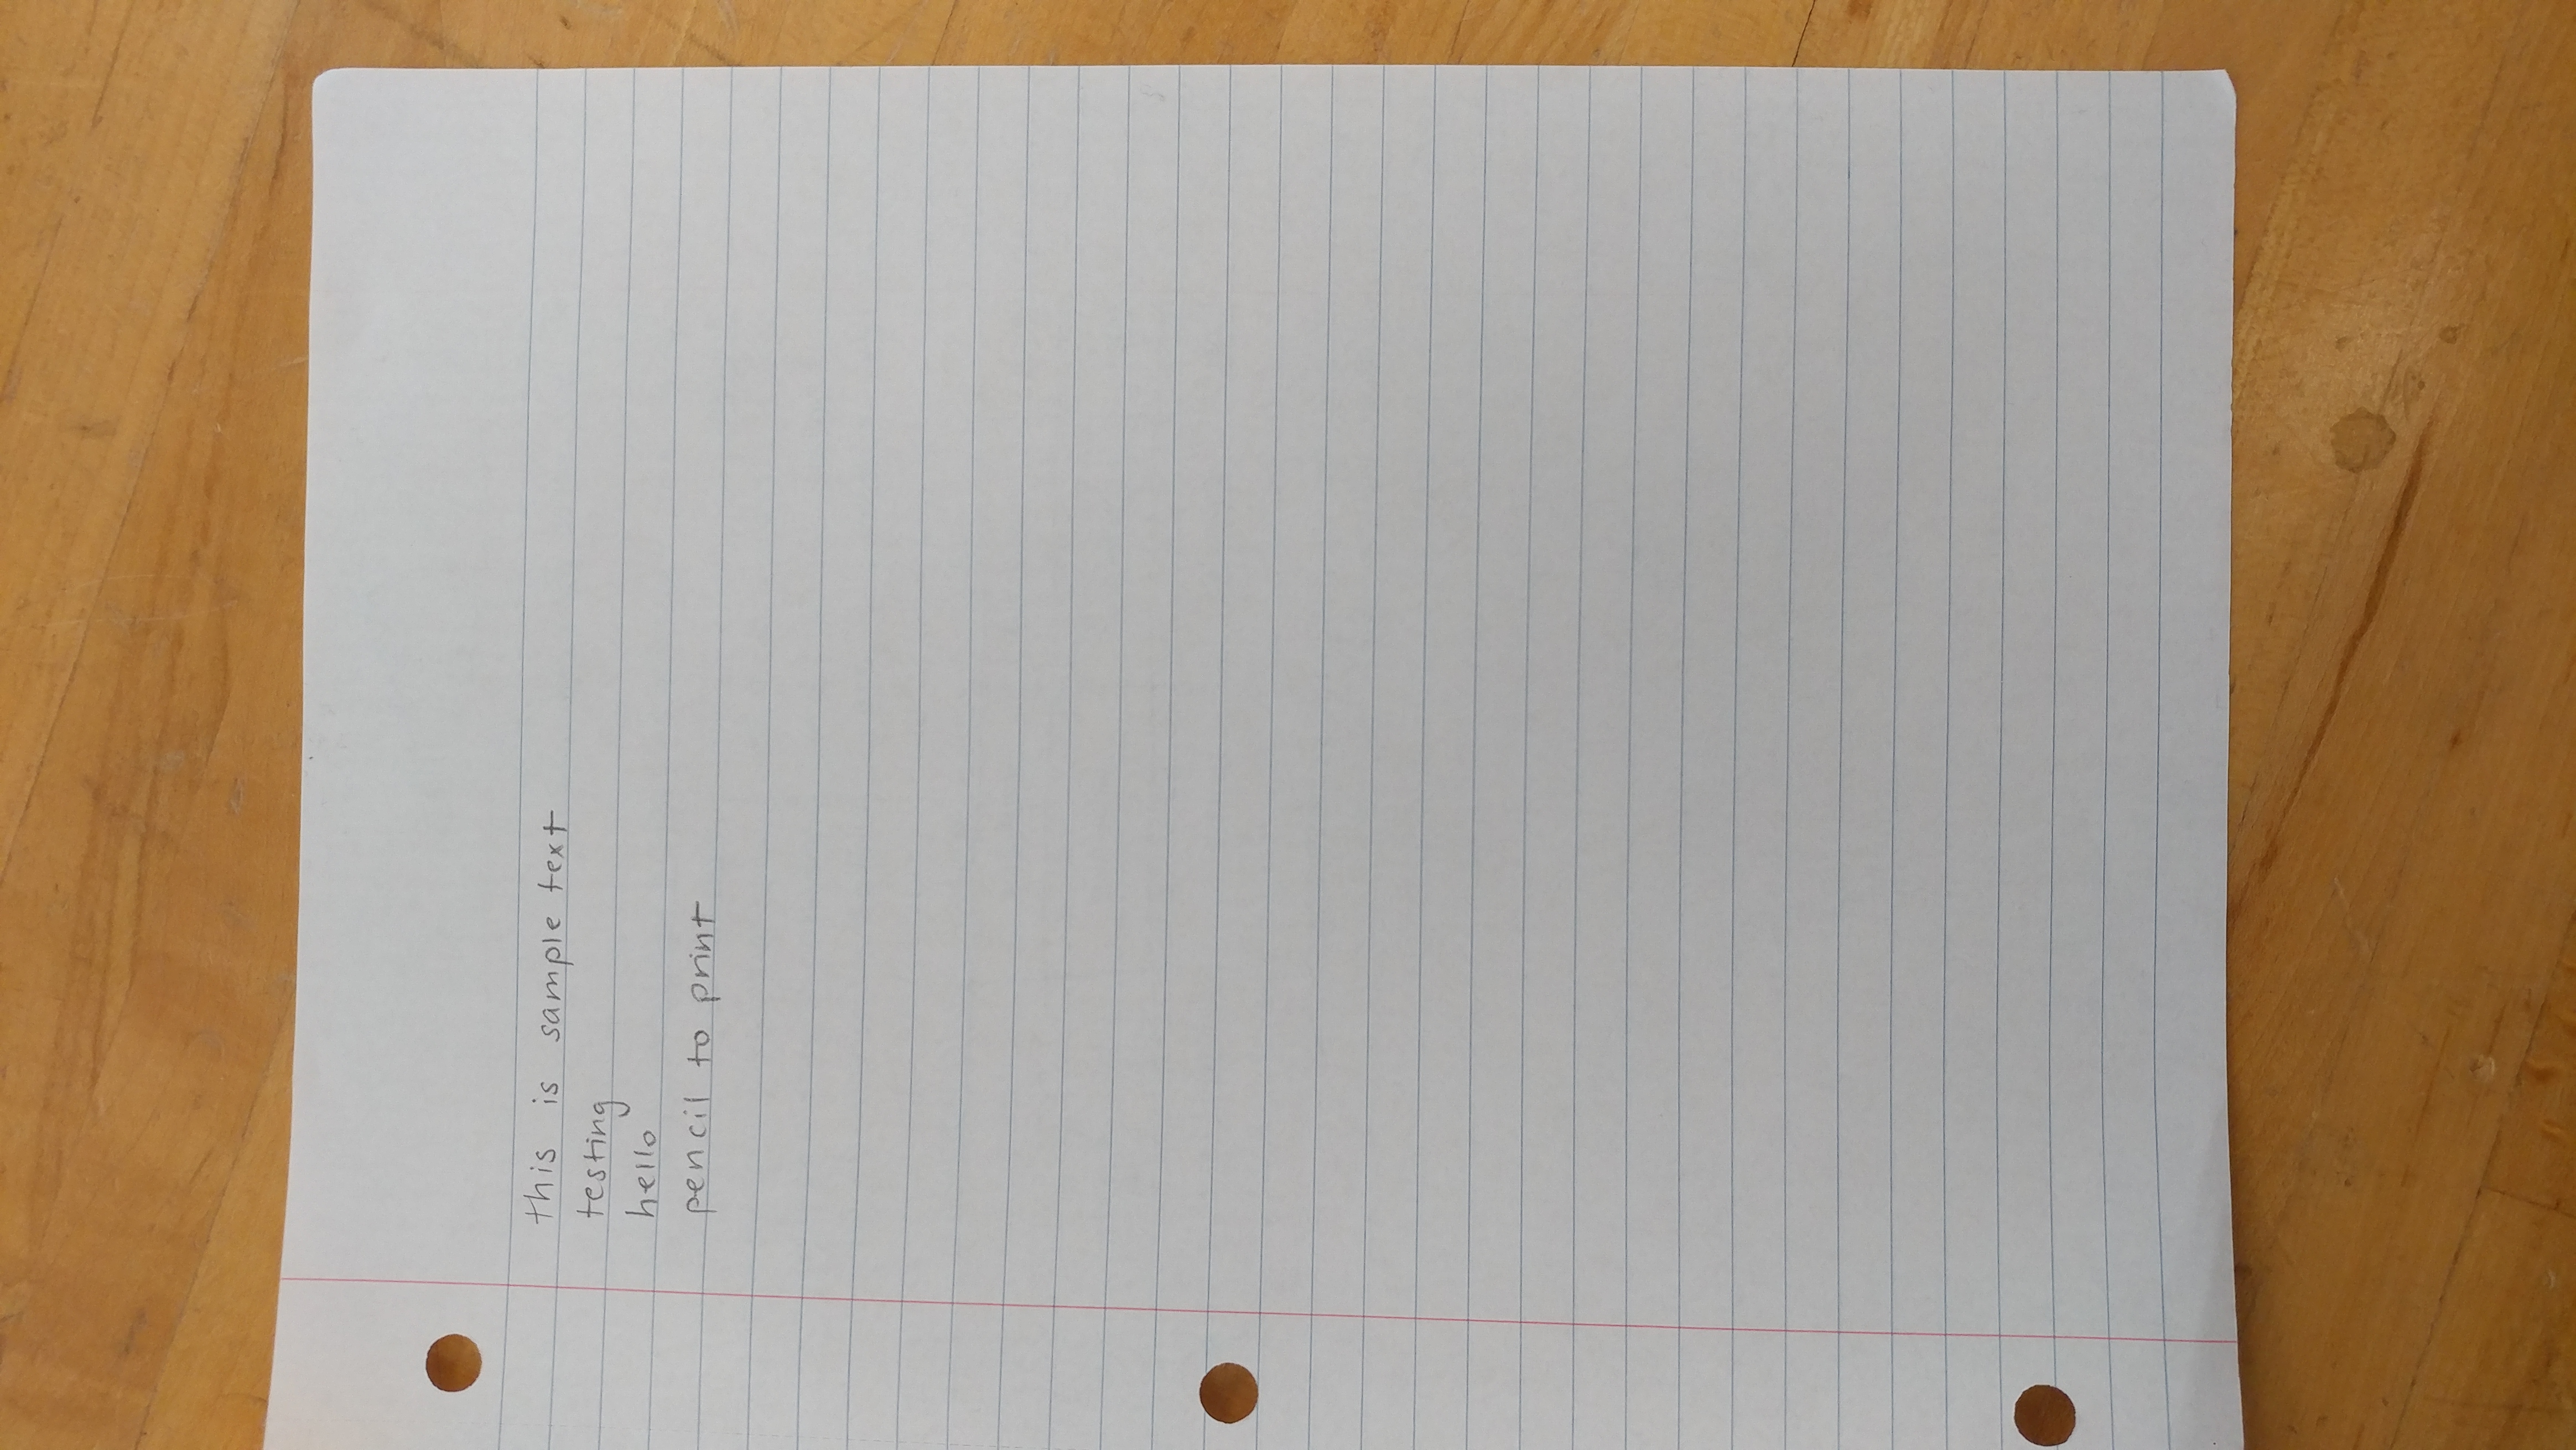 this is sample text
testing
hello
pencil to print